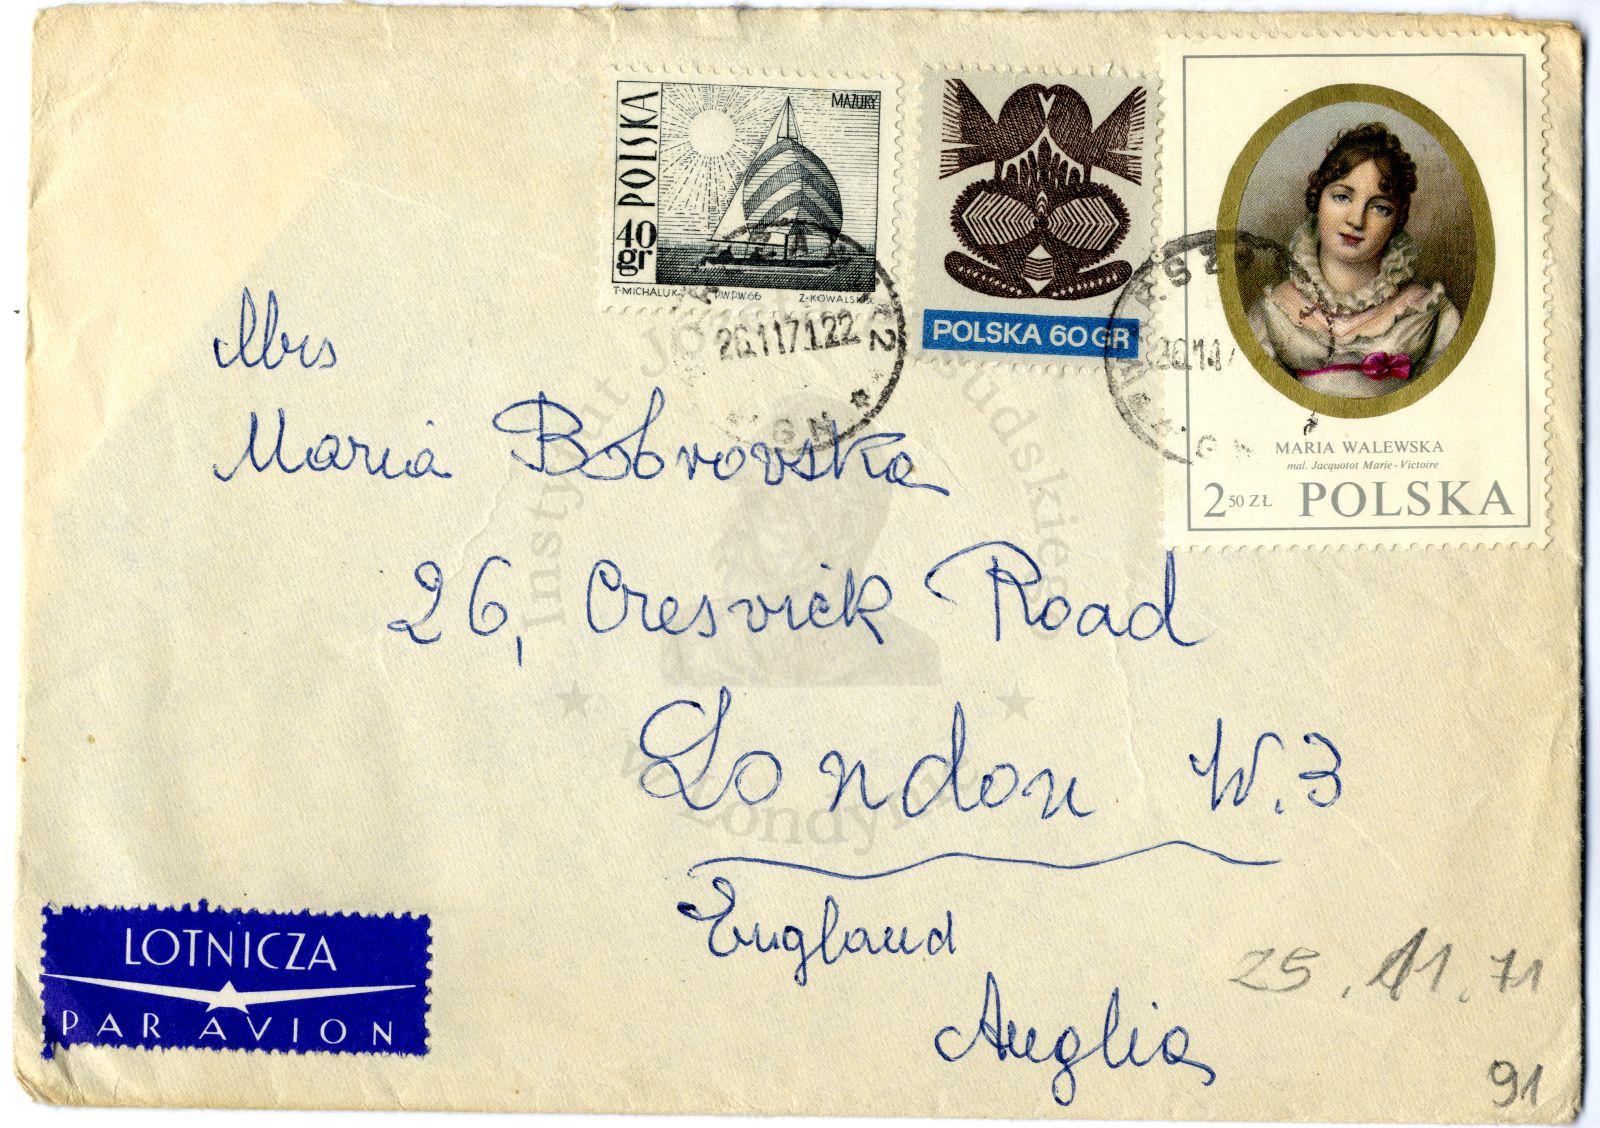 POLSKA
40 gr
MAZURY
T. MICHALUK
PWPW 66
Z. KOWALSKI
POLSKA 60 GR
MARIA WALEWSKA
mal. Jacquotot Marie-Victoire
2 50 ZŁ POLSKA
26.11.71.22
2
Mrs
Maria Bobrovska
26, Cresvick Road
London W.3
England
Anglia
LOTNICZA
PAR AVION
25.11.71
91
Instytut Józefa Piłsudskiego
w Londynie